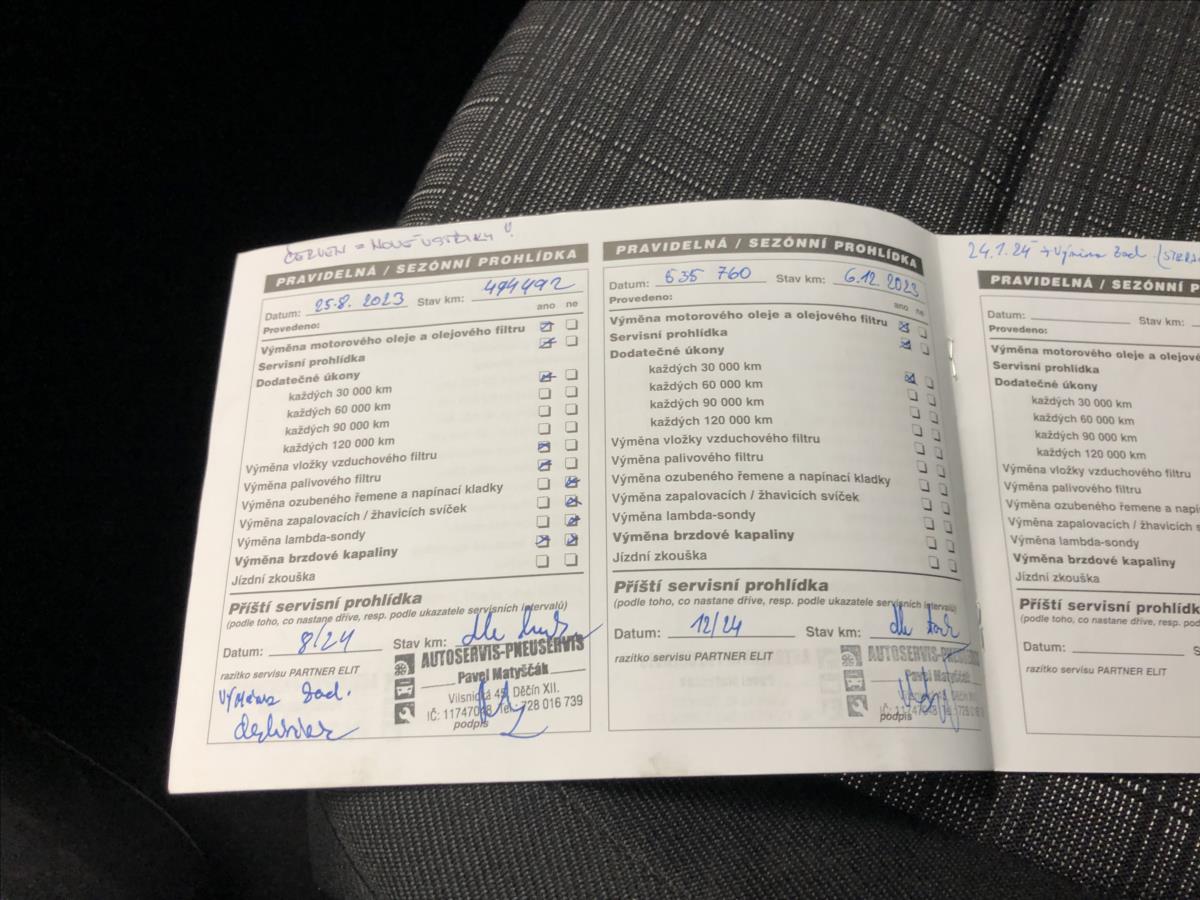 ČERVEN = NOVÉ VSTŘIKY !
PRAVIDELNÁ / SEZÓNNÍ PROHLÍDKA
Datum: 25.8. 2023 Stav km: 494492
Provedeno: ano ne
Výměna motorového oleje a olejového filtru
Servisní prohlídka
Dodatečné úkony
každých 30 000 km
každých 60 000 km
každých 90 000 km
každých 120 000 km
Výměna vložky vzduchového filtru
Výměna palivového filtru
Výměna ozubeného řemene a napínací kladky
Výměna zapalovacích / žhavicích svíček
Výměna lambda-sondy
Výměna brzdové kapaliny
Jízdní zkouška
Příští servisní prohlídka
(podle toho, co nastane dříve, resp. podle ukazatele servisních intervalů)
Datum: 8/24 Stav km: dle
razítko servisu PARTNER ELIT
AUTOSERVIS-PNEUSERVIS
Pavel Matyščák
Vilsnická 45, Děčín XII.
IČ: 11747048 Tel.: 728 016 739
podpis
Výměna zad.
PRAVIDELNÁ / SEZÓNNÍ PROHLÍDKA
Datum: 535 760 Stav km: 6.12. 2023
Provedeno: ano ne
Výměna motorového oleje a olejového filtru
Servisní prohlídka
Dodatečné úkony
každých 30 000 km
každých 60 000 km
každých 90 000 km
každých 120 000 km
Výměna vložky vzduchového filtru
Výměna palivového filtru
Výměna ozubeného řemene a napínací kladky
Výměna zapalovacích / žhavicích svíček
Výměna lambda-sondy
Výměna brzdové kapaliny
Jízdní zkouška
Příští servisní prohlídka
(podle toho, co nastane dříve, resp. podle ukazatele servisních intervalů)
Datum: 12/24 Stav km: dle
razítko servisu PARTNER ELIT
AUTOSERVIS-PNEU
Pavel Matyščák
podpis
24.1.24 + Výměna zad.
PRAVIDELNÁ / SEZÓNNÍ P
Datum: Stav km:
Provedeno:
Výměna motorového oleje a olejové
Servisní prohlídka
Dodatečné úkony
každých 30 000 km
každých 60 000 km
každých 90 000 km
každých 120 000 km
Výměna vložky vzduchového filtru
Výměna palivového filtru
Výměna ozubeného řemene a napí
Výměna zapalovacích / žhavicích s
Výměna lambda-sondy
Výměna brzdové kapaliny
Jízdní zkouška
Příští servisní prohlídk
(podle toho, co nastane dříve, resp. podle uka
Datum: S
razítko servisu PARTNER ELIT